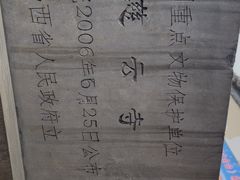 重点文物保护单位
云寺
2006年6月25日公布
西省人民政府立